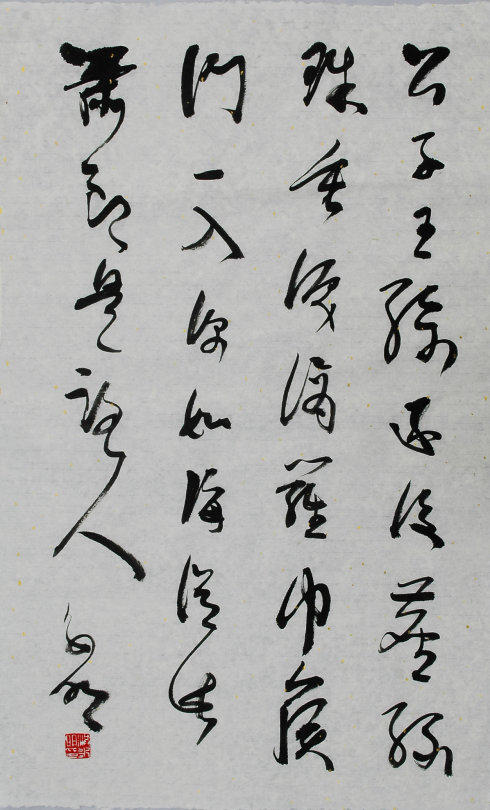 公子王孫逐後塵綠
珠垂淚滴羅巾侯
門一入深如海從此
蕭郎是路人